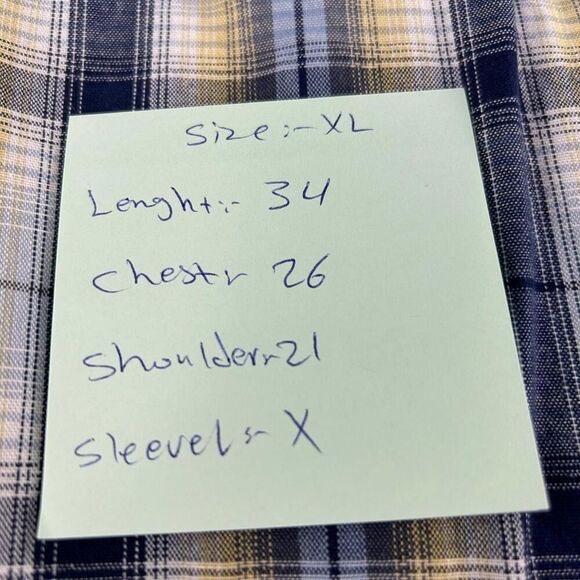 Size:- XL
Lenght:- 34
Chest:- 26
Shoulder:- 21
Sleevel:- X